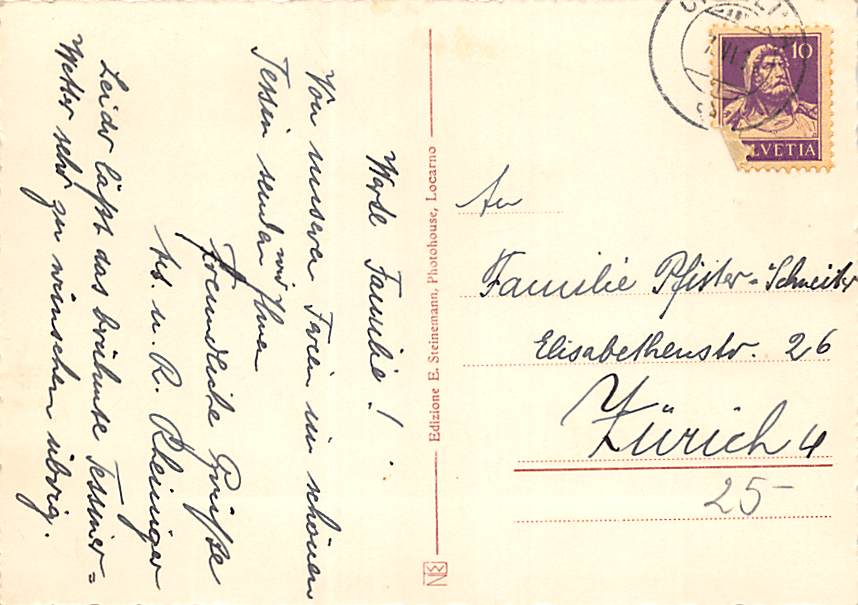 Werte Familie!
Von unseren Ferien im schönen
Tessin senden wir Ihnen
freundliche Grüsse
u. R. Rheiniger
Leider läßt das berühmte Tessiner=
Wetter sehr zu wünschen übrig.
Edizione E. Steinemann, Photohouse, Locarno
10
HELVETIA
An
Familie Pfister-Schneiter
Elisabethenstr. 26
Zürich 4
25-